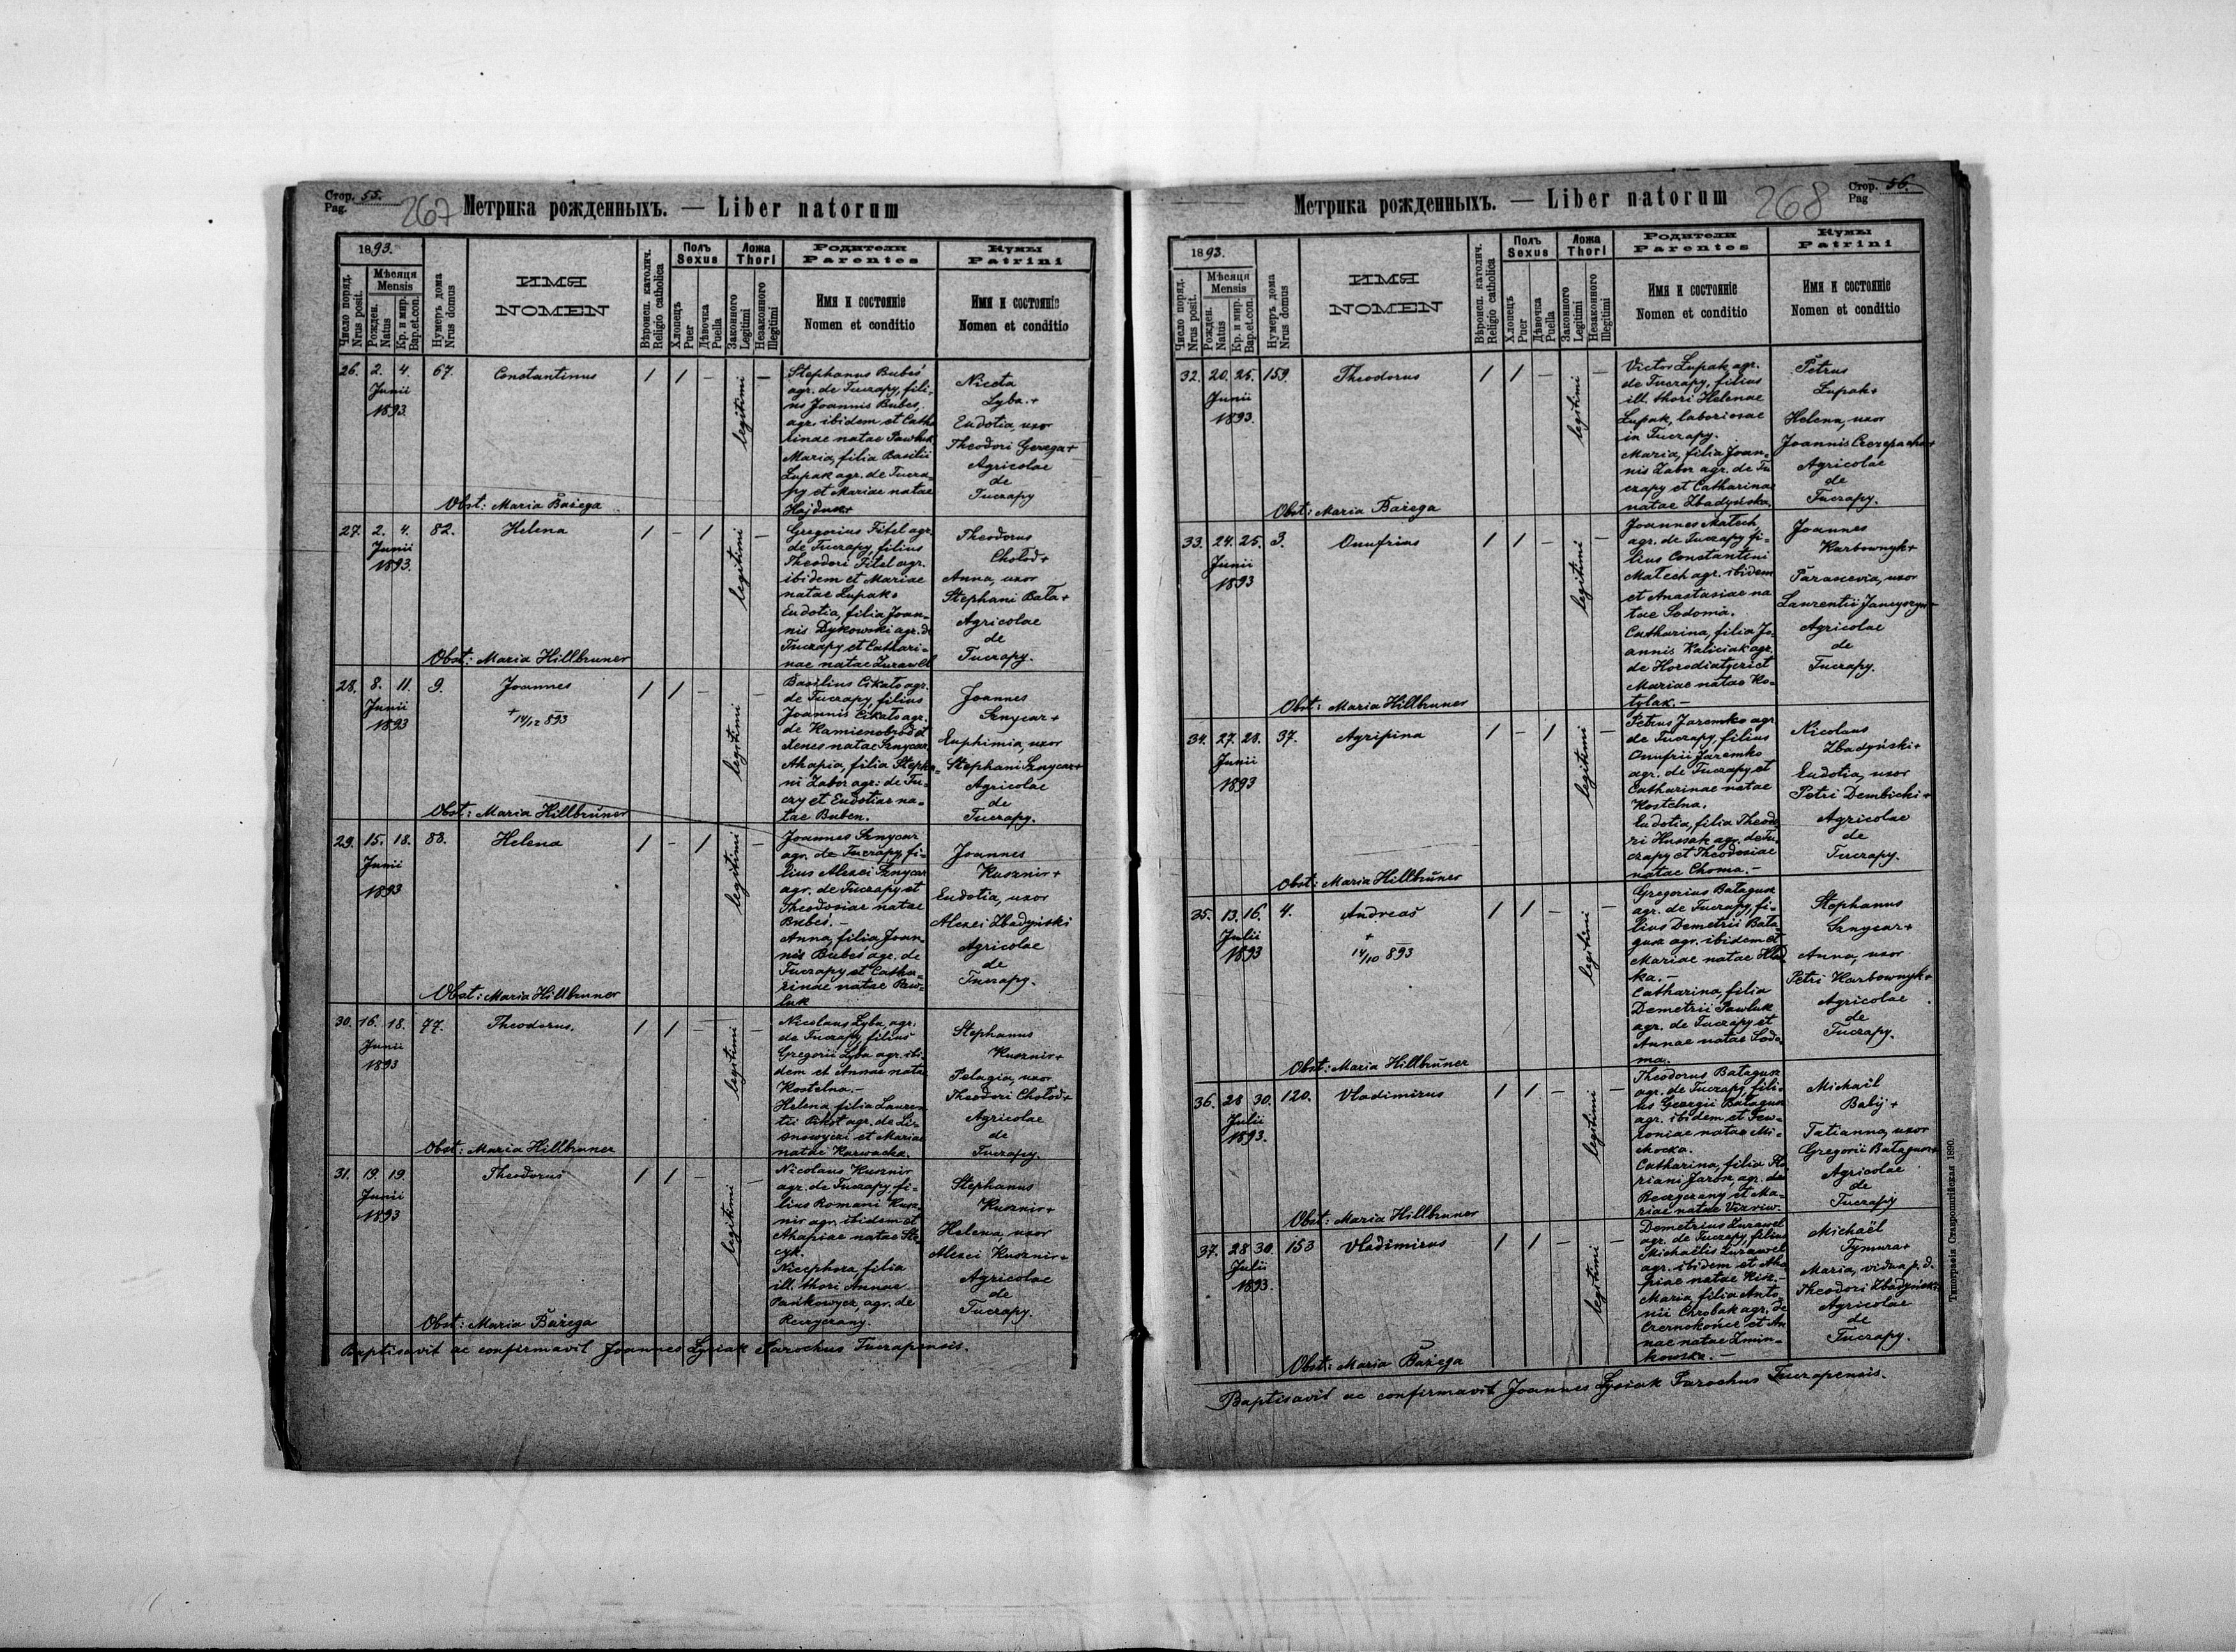 Стор. 55.
Pag.
267
Метрика рожденныхъ. — Liber natorum
1893.
Число поряд.
Nrus posit.
Мѣсяця
Mensis
Рожден.
Natus
Кр. и мир.
Bap. et con.
Нумеръ дома
Nrus domus
ИМЯ
NOMEN
Вѣроисп. католич.
Religio catholica
Полъ
Sexus
Хлопець
Puer
Дѣвочка
Puella
Ложа
Thori
Законного
Legitimi
Незаконного
Illegitimi
Родители
Parentes
Имя и состоянiе
Nomen et conditio
Кумы
Patrini
Имя и состоянiе
Nomen et conditio
26. 2. 4. 67. Constantinus / / — legitimi —
Junii
1893.
Stephanus Bubeś
agr. de Tuczapy, fili-
us Joannis Bubeś,
agr. ibidem et Catha
rinae natae Pawluk
Maria, filia Basilii
Lupak agr. de Tucza-
py et Mariae natae
Hajduk+
Niceta
Lyba.+
Eudotia, uxor
Theodori Gerega+
Agricolae
de
Tuczapy
Obst: Maria Bařega
27. 2. 4. 82. Helena / — / legitimi —
Junii
1893.
Gregorius Fitel agr.
de Tuczapy, filius
Theodori Fitel agr.
ibidem et Mariae
natae Lupak+
Eudotia, filia Joan-
nis Dykowski agr. de
Tuczapy et Cathari-
nae natae Zurawel
Theodorus
Cholod+
Anna, uxor
Stephani Bała+
Agricolae
de
Tuczapy.
Obst: Maria Hillbruner
28. 8. 11. 9. Joannes / / — legitimi —
Junii
1893
+ 14/12 893
Basilius Cikało agr.
de Tuczapy, filius
Joannis Cikało agr.
de Kamienobród et
Xenes natae Sznycar.
Ahapia, filia Stepha-
ni Zabor agr: de Tu-
czy et Eudotiae na-
tae Buben.
Joannes
Sznycar+
Euphimia, uxor
Stephani Sznycar+
Agricolae
de
Tuczapy.
Obst: Maria Hillbrŭner
29. 15. 18. 83. Helena / — / legitimi —
Junii
1893
Joannes Sznycar
agr. de Tuczapy, fi-
lius Alexei Sznycar
agr. de Tuczapy et
Theodosiae natae
Bubeś.
Anna, filia Joan-
nis Bubeś agr. de
Tuczapy et Catha-
rinae natae Paw-
luk
Joannes
Kusznir+
Eudotia, uxor
Alexei Zbadyński
Agricolae
de
Tuczapy.
Obst: Maria Hillbruner
30. 16. 18. 77. Theodorus. / / — legitimi —
Junii
1893
Nicolaus Lyba, agr.
de Tuczapy, filius
Gregorii Lyba agr. ibi-
dem et Annae nata
Kostelna.—
Helena, filia Lauren
tii Pikot agr. de Li-
snowyczi et Mariae
natae Karwacka.
Stephanus
Kusznir+
Pelagia, uxor
Theodori Cholod+
Agricolae
de
Tuczapy.
Obst: Maria Hillbruner
31. 19. 19. Theodorus / / — legitimi —
Junii
1893
Nicolaus Kusznir
agr. de Tuczapy fi-
lius Romani Kusz-
nir agr. ibidem et
Ahapiae natae Ste
cyk.
Nicephora, filia
ill. thori Annae
Pańkowycz, agr. de
Reczyczany.
Stephanus
Kusznir+
Helena, uxor
Alexei Kusznir+
Agricolae
de
Tuczapy.
Obst: Maria Bařega
Baptisavit ac confirmavit Joannes Lysiak Parochus Tuczapensis.
Стор. 56.
Pag
268
Метрика рожденныхъ. — Liber natorum
1893.
Число поряд.
Nrus posit.
Мѣсяця
Mensis
Рожден.
Natus
Кр. и мир.
Bap. et con.
Нумеръ дома
Nrus domus
ИМЯ
NOMEN
Вѣроисп. католич.
Religio catholica
Полъ
Sexus
Хлопець
Puer
Дѣвочка
Puella
Ложа
Thori
Законного
Legitimi
Незаконного
Illegitimi
Родители
Parentes
Имя и состоянiе
Nomen et conditio
Кумы
Patrini
Имя и состоянiе
Nomen et conditio
32. 20. 25. 159. Theodorus / / — legitimi —
Junii
1893.
Victor Lupak agr.
de Tuczapy, filius
ill. thori Helenae
Lupak, laboriosae
in Tuczapy.
Maria, filia Joan-
nis Zabor agr. de Tu
czapy et Catharinae
natae Zbadyńska.
Petrus
Lupak+
Helena, uxor
Joannis Czezepacha+
Agricolae
de
Tuczapy.
Obst: Maria Bařega
33. 24. 25. 3. Onufrius / / — legitimi —
Junii
1893
Joannes Matech,
agr. de Tuczapy fi-
lius Constantini
Matech agr. ibidem
et Anastasiae na
tae Sodoma.
Catharina, filia Jo-
annis Kaliciak agr.
de Horodiatyczi et
Mariae natae Ko-
tylak.—
Joannes
Karbownyk+
Parascevia, uxor
Laurentii Janyszyn+
Agricolae
de
Tuczapy.
Obst: Maria Hillbruner
34. 27. 28. 37. Agripina / — / legitimi —
Junii
1893
Petrus Jaremko agr
de Tuczapy, filius
Onufrii Jaremko
agr. de Tuczapy et
Catharinae natae
Kostelna,
Eudotia, filia Theodo
ri Hussak agr. de Tu-
czapy et Theodosiae
natae Choma.—
Nicolaus
Zbadyński+
Eudotia, uxor
Petri Dembicki+
Agricolae
de
Tuczapy.
Obst: Maria Hillbrŭner
35. 13. 16. 4. Andreas / / — legitimi —
Julii
1893
+
14/10 893
Gregorius Batagusz
agr. de Tuczapy, fi-
lius Demetrii Bata-
gusz agr. ibidem et
Mariae natae Hlad
ka.—
Catharina, filia
Demetrii Pawluk
agr. de Tuczapy et
Annae natae Sodo-
ma.
Stephanus
Sznycar+
Anna, uxor
Petri Karbownyk+
Agricolae
de
Tuczapy.
Obst: Maria Hillbrŭner
36. 28 30. 120. Vladimirus / / — legitimi —
Julii
1893.
Theodorus Batagusz
agr. de Tuczapy, fili-
us Georgii Batagusz
agr. ibidem et Few-
roniae natae Mi-
chocka.
Catharina, filia Flo
riani Jarosz, agr. de
Reczyczany et Ma-
riae natae Vizriw.
Michaël
Babij+
Tatianna, uxor
Gregorii Batagusz+
Agricolae
de
Tuczapy
Obst: Maria Hillbruner
37. 28 30. 153 Vladimirus / / — legitimi —
Julii
1893.
Demetrius Zurawel
agr. de Tuczapy, filius
Michaëlis Zurawel
agr. ibidem et Aha
piae natae Kisz.—
Maria, filia Anto-
nii Chrobak agr. de
Czernokońce et An
nae natae Zmin-
kowska.—
Michaël
Tymura+
Maria, vidua p. d.
Theodori Zbadyński+
Agricolae
de
Tuczapy.
Obst: Maria Bařega
Baptisavit ac confirmavit Joannes Lysiak Parochus Tuczapensis.
Типографiя Ставропигiйская 1890.